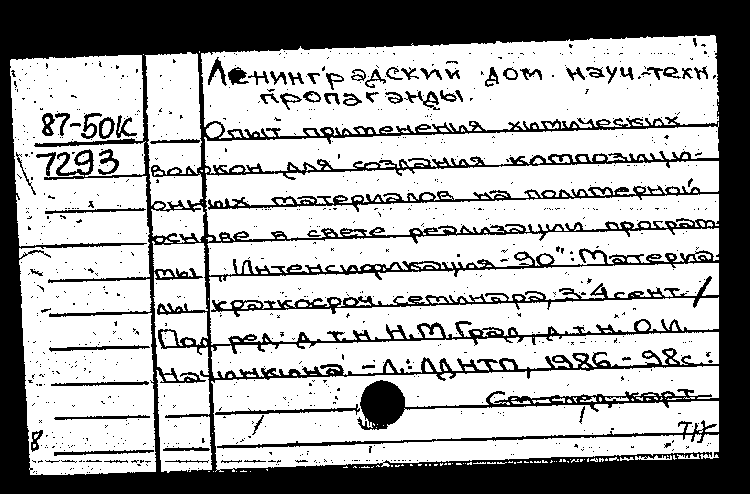 Ленинградский дом науч.-техн.
пропаганды.
87-50К
Опыт применения химических
7293
волокон для создания компози­ци-
онных материалов на полимерной
основе в свете реализации програм-
мы „Интенсификация-90": Материа-
лы краткосроч. семинара, 3-4 сент. /
Под. ред. д.т.н. Н.М. Град, д.т.н. О.И.
Начинкина. - Л.: ЛДНТП, 1986. - 98с.:
См. след. карт.
8
ТН